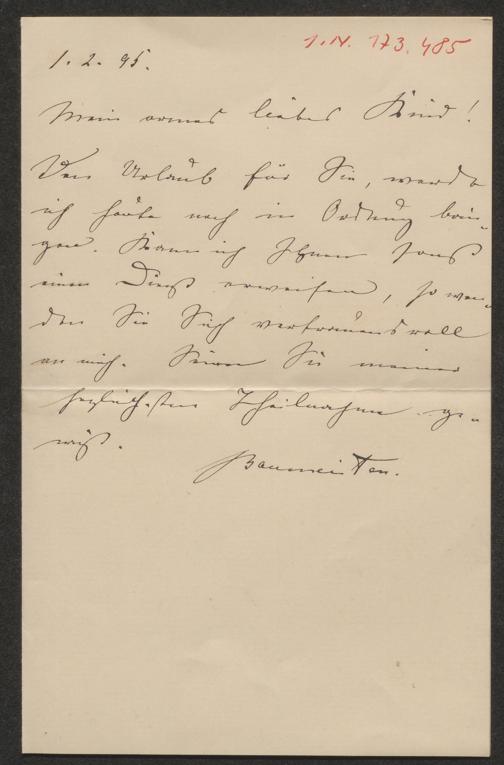 I.N. 173.485
1. 2. 95.
Mein armes liebes Kind!
Den Urlaub für Sie, werde
ich heute noch in Ordnung brin-
gen. Kann ich Ihnen sonst
einen Dienst erweisen, so wen-
den Sie Sich vertrauensvoll
an mich. Seien Sie meiner
herzlichsten Theilnahme ge-
wiß.
Baumeister.